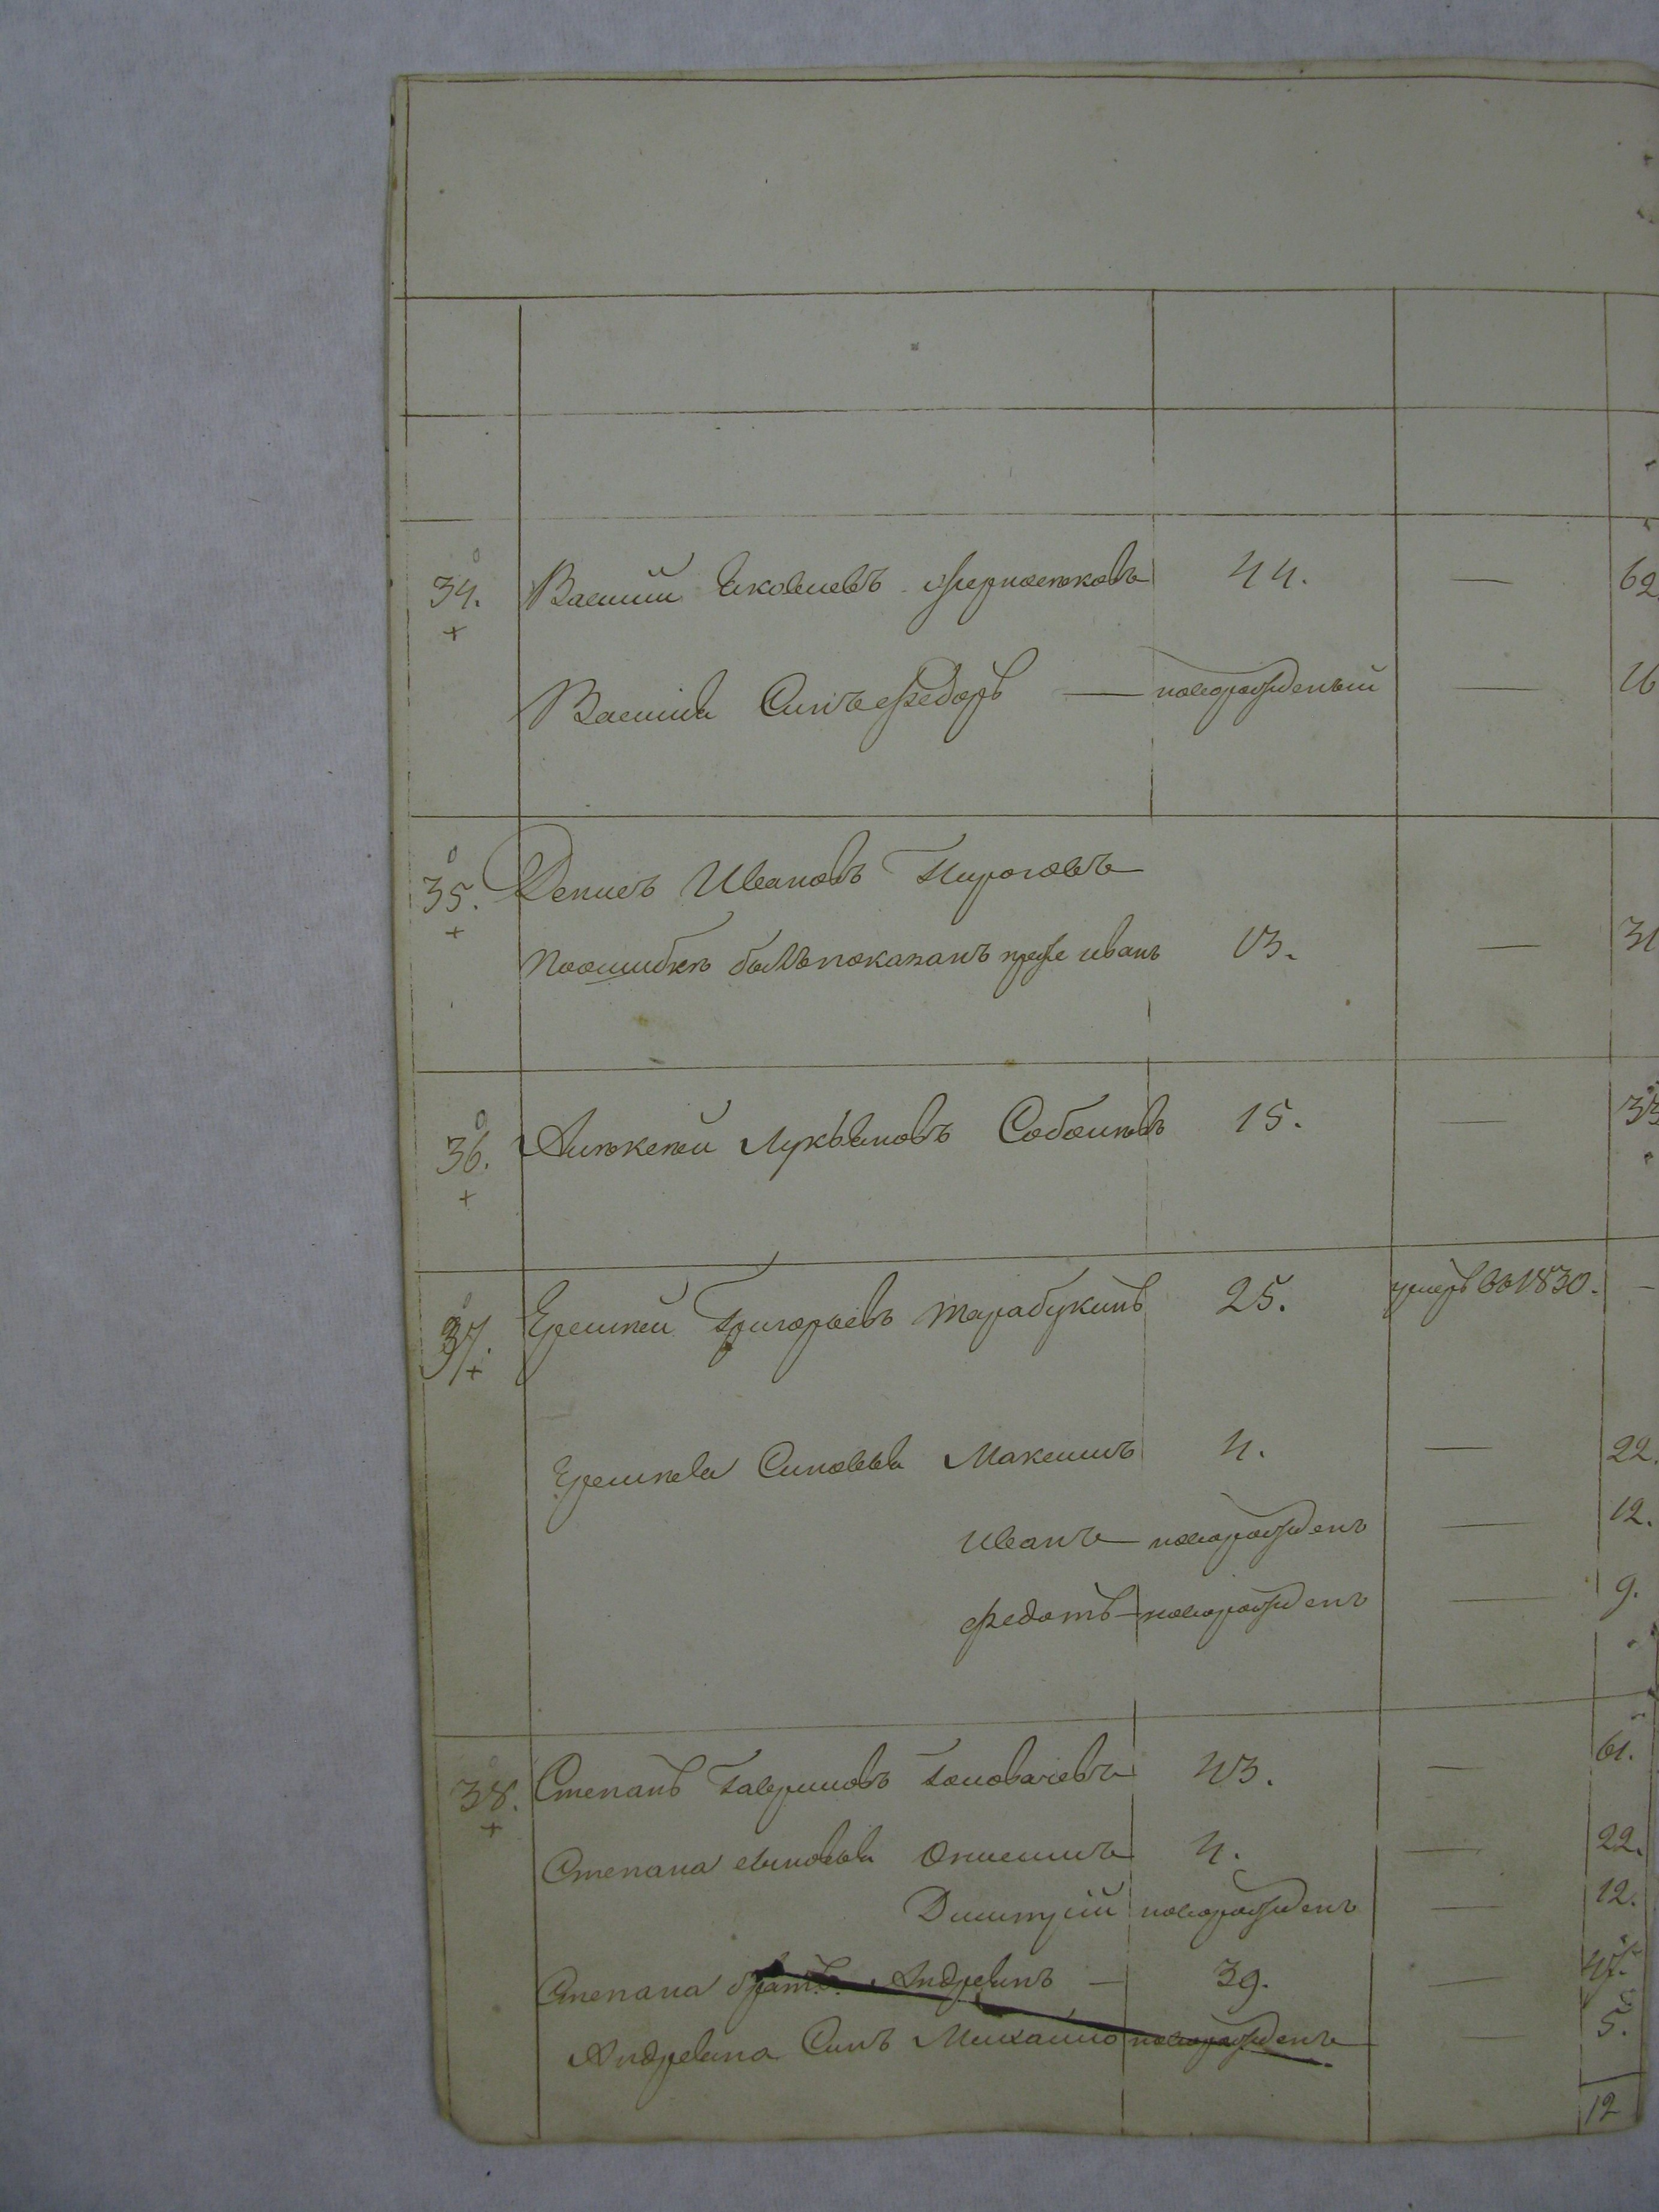 34. Василий Яковлевъ 44. — 62
Василья Сынъ Федоръ — новорожденный — 16
35. Денисъ Ивановъ Пироговъ
поошибкѣ былъ показанъ преже иванъ 13. — 31
36. Алѣксѣй Лукьяновъ 15. — 33
37. Ерешѣй Григорьевъ Тарабукинъ 25. умеръ въ 1830. —
Ерешѣя Сыновья Максимъ 4. — 22.
Иванъ — новорожденъ — 12.
Федотъ — новорожденъ — 9.
38. Степанъ Гавриловъ Головачевъ 43. — 61.
Степана сыновья Онисимъ 4. — 22.
Димитрій новорожденъ — 12.
Степана братъ Андреянъ — 39. —
Андреяна Сынъ Михайло новорожденъ — 5.
12